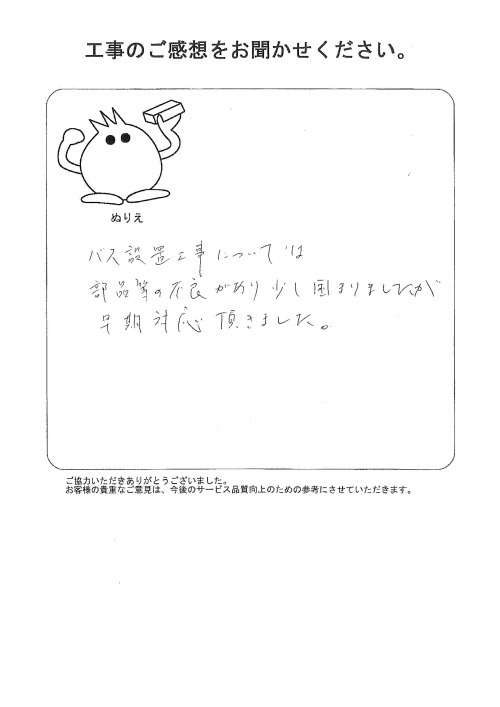 工事のご感想をお聞かせください。
ぬりえ
バス設置工事については
部品等の不良があり少し困りましたが
早期対応頂きました。
ご協力いただきありがとうございました。
お客様の貴重なご意見は、今後のサービス品質向上のための参考にさせていただきます。